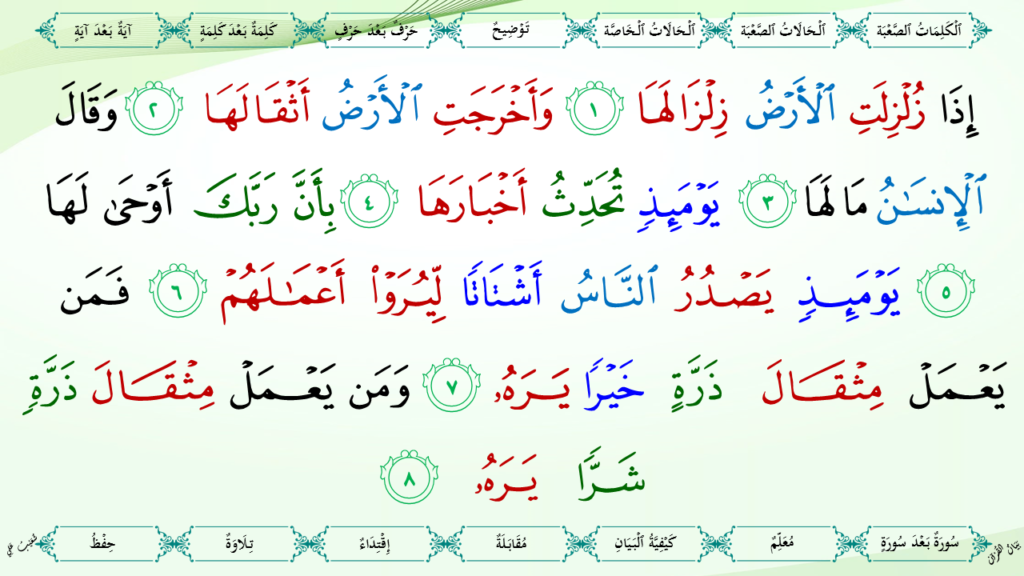 ٱلْكَلِمَاتُ ٱلصَّعْبَة ٱلْحَالَاتُ ٱلصَّعْبَة ٱلْحَالَاتُ ٱلْخَاصَّة تَوْضِيحٌ حَرْفٌ بَعْدَ حَرْفٍ كَلِمَةٌ بَعْدَ كَلِمَةٍ آيَةٌ بَعْدَ آيَةٍ
إِذَا زُلْزِلَتِ ٱلْأَرْضُ زِلْزَالَهَا ١ وَأَخْرَجَتِ ٱلْأَرْضُ أَثْقَالَهَا ٢ وَقَالَ
ٱلْإِنسَـٰنُ مَا لَهَا ٣ يَوْمَئِذٍ تُحَدِّثُ أَخْبَارَهَا ٤ بِأَنَّ رَبَّكَ أَوْحَىٰ لَهَا
٥ يَوْمَئِذٍ يَصْدُرُ ٱلنَّاسُ أَشْتَاتًا لِّيُرَوْا۟ أَعْمَـٰلَهُمْ ٦ فَمَن
يَعْمَلْ مِثْقَالَ ذَرَّةٍ خَيْرًا يَرَهُۥ ٧ وَمَن يَعْمَلْ مِثْقَالَ ذَرَّةٍ
شَرًّا يَرَهُۥ ٨
سُورَةٌ بَعْدَ سُورَةٍ مُعَلِّمٌ كَيْفِيَّةُ ٱلْبَيَانِ مُقَابَلَةٌ إِقْتِدَاءٌ تِلَاوَةٌ حِفْظٌ